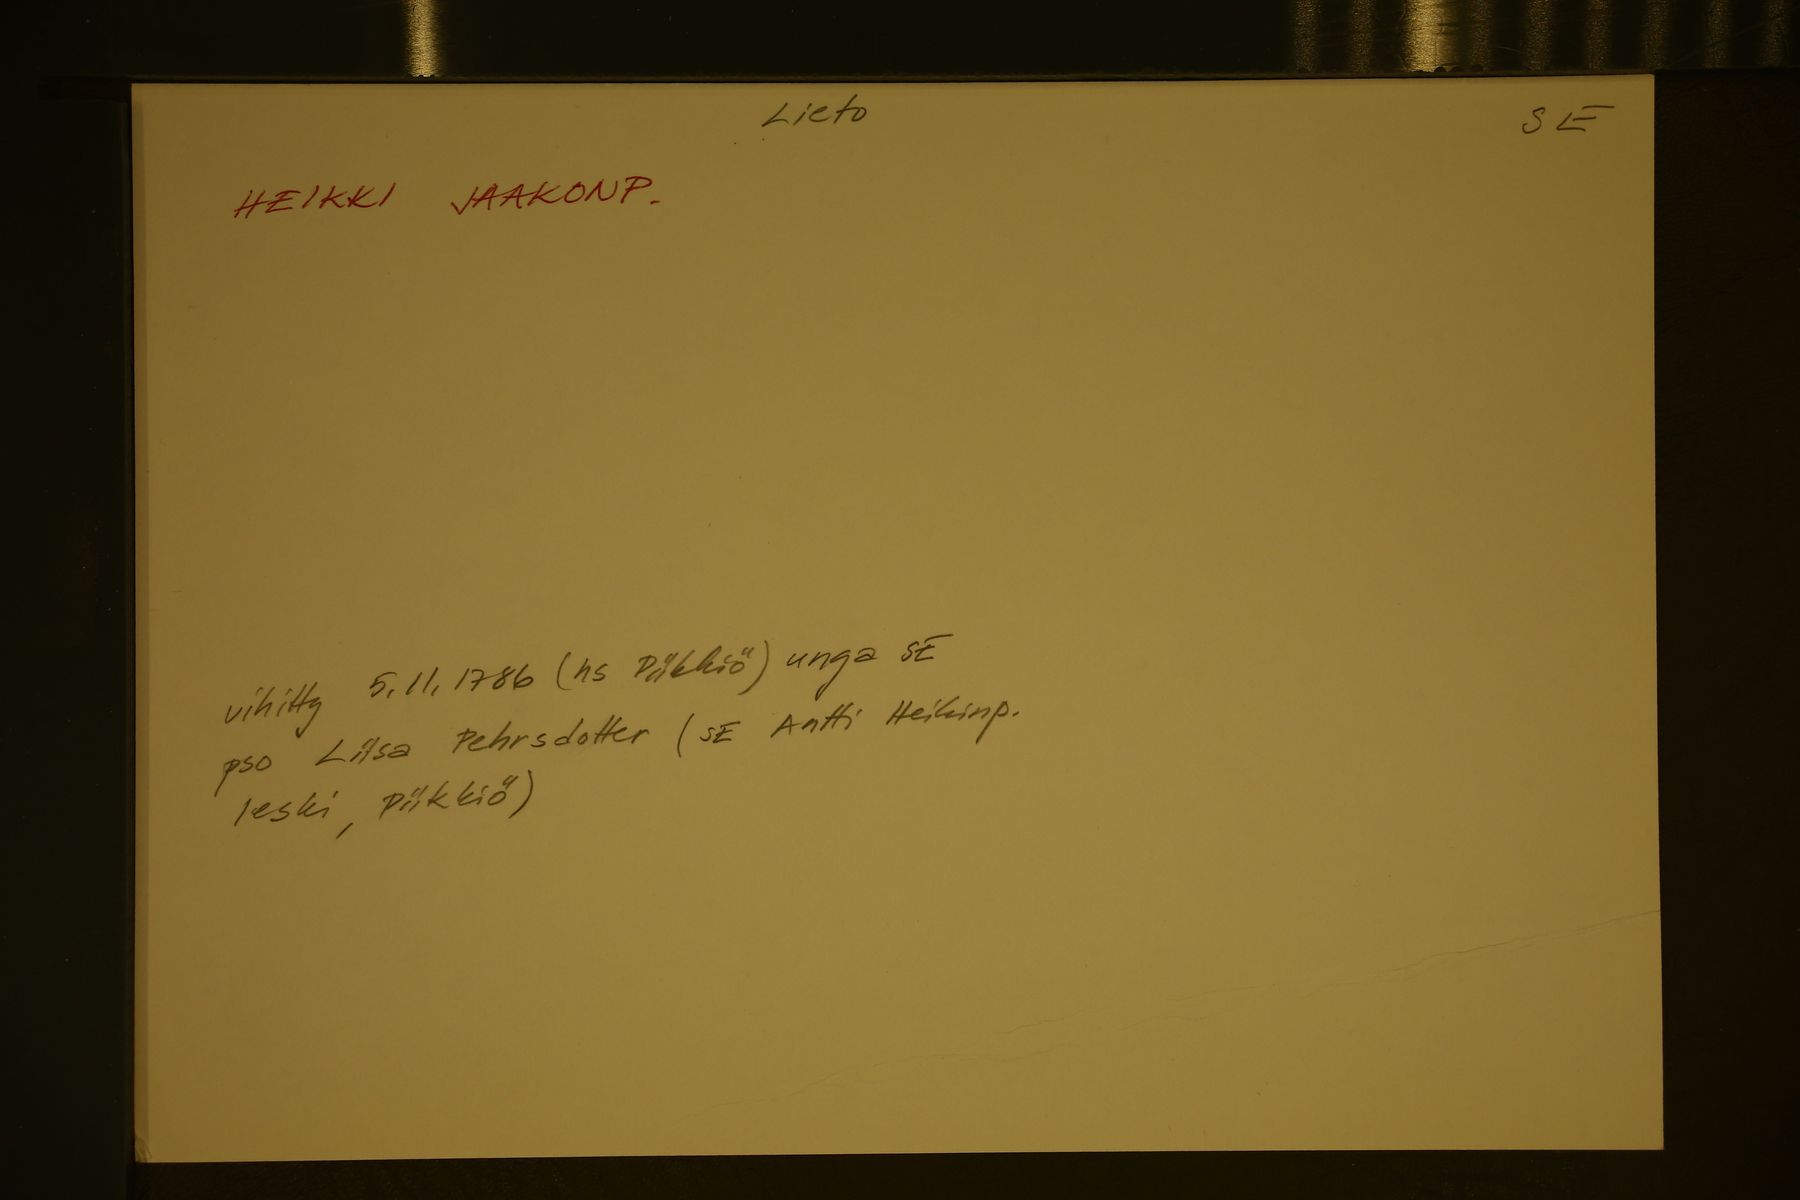 Lieto
SE
HEIKKI JAAKONP.
vihitty 5.11.1786 (hs Piikkiö) unga SE
pso Liisa Pehrsdotter (SE Antti Heikinp.
leski, Piikkiö)